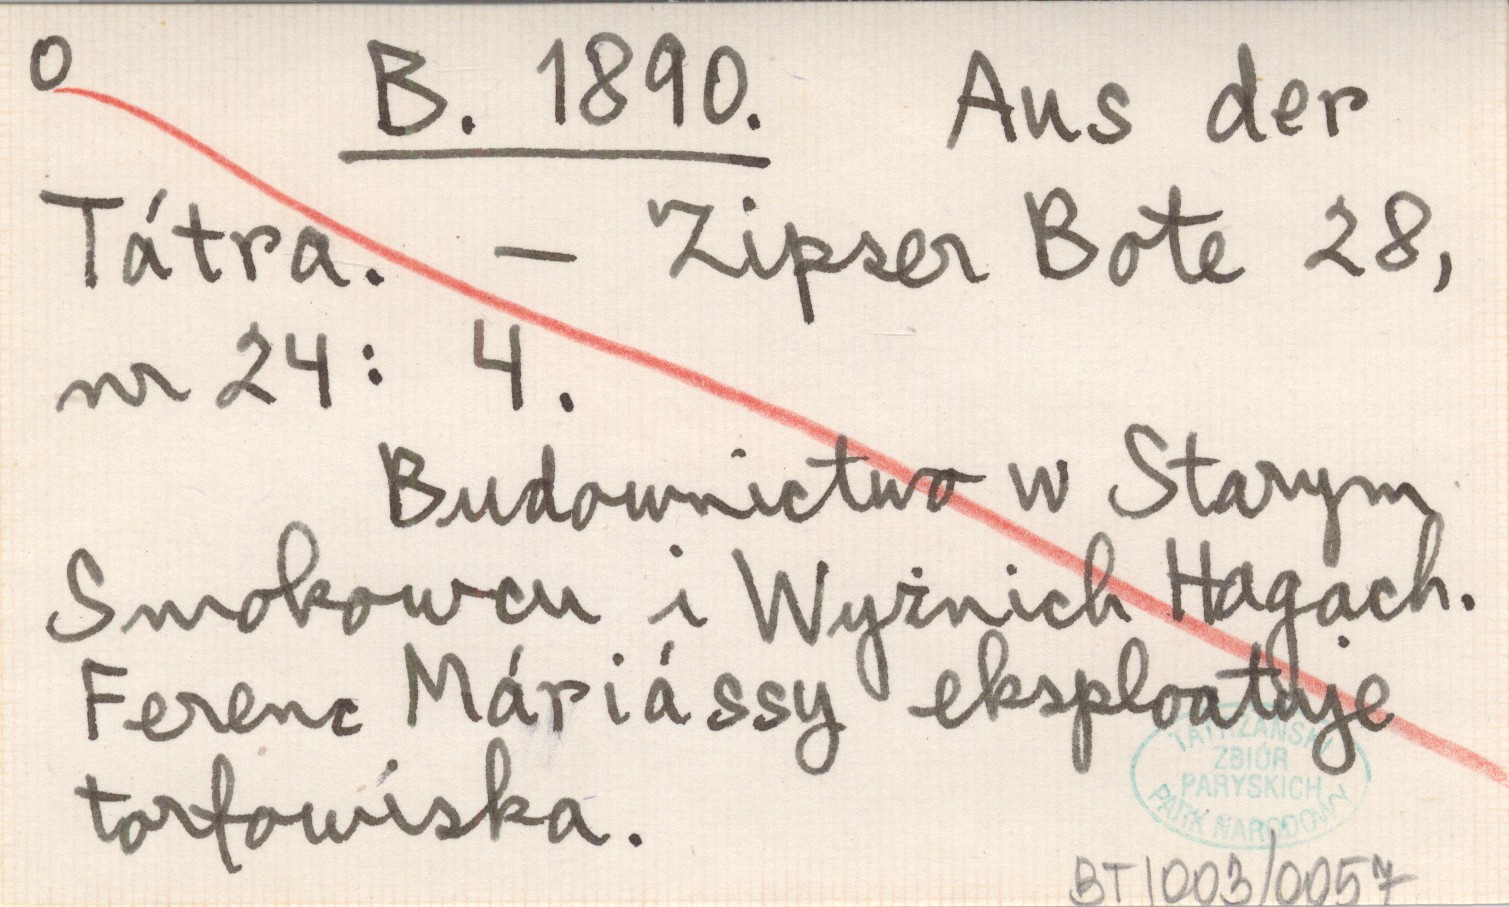 O B. 1890. Aus der
Tátra. — Zipser Bote 28,
nr 24: 4.
Budownictwo w Starym
Smokowcu i Wyżnich Hagach.
Ferenc Máriássy eksploatuje
torfowiska.
TATRZAŃSKI
ZBIÓR
PARYSKICH
PARK NARODOWY
BT/003/0057